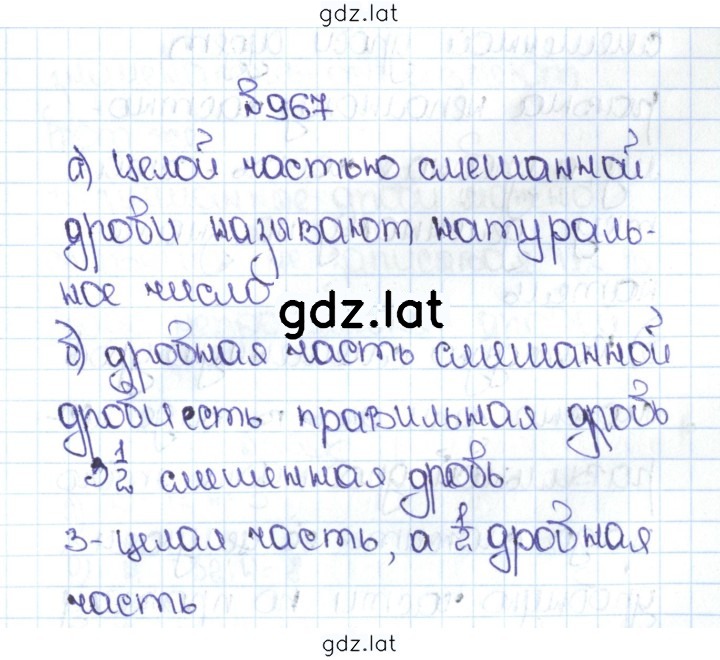 gdz.lat
№967
а) целой частью смешанной
дроби называют натураль-
ное число
gdz.lat
б) дробная часть смешанной
дроби есть правильная дробь
3 1/2 смешенная дробь
3- целая часть, а 1/2 дробная
часть
gdz.lat